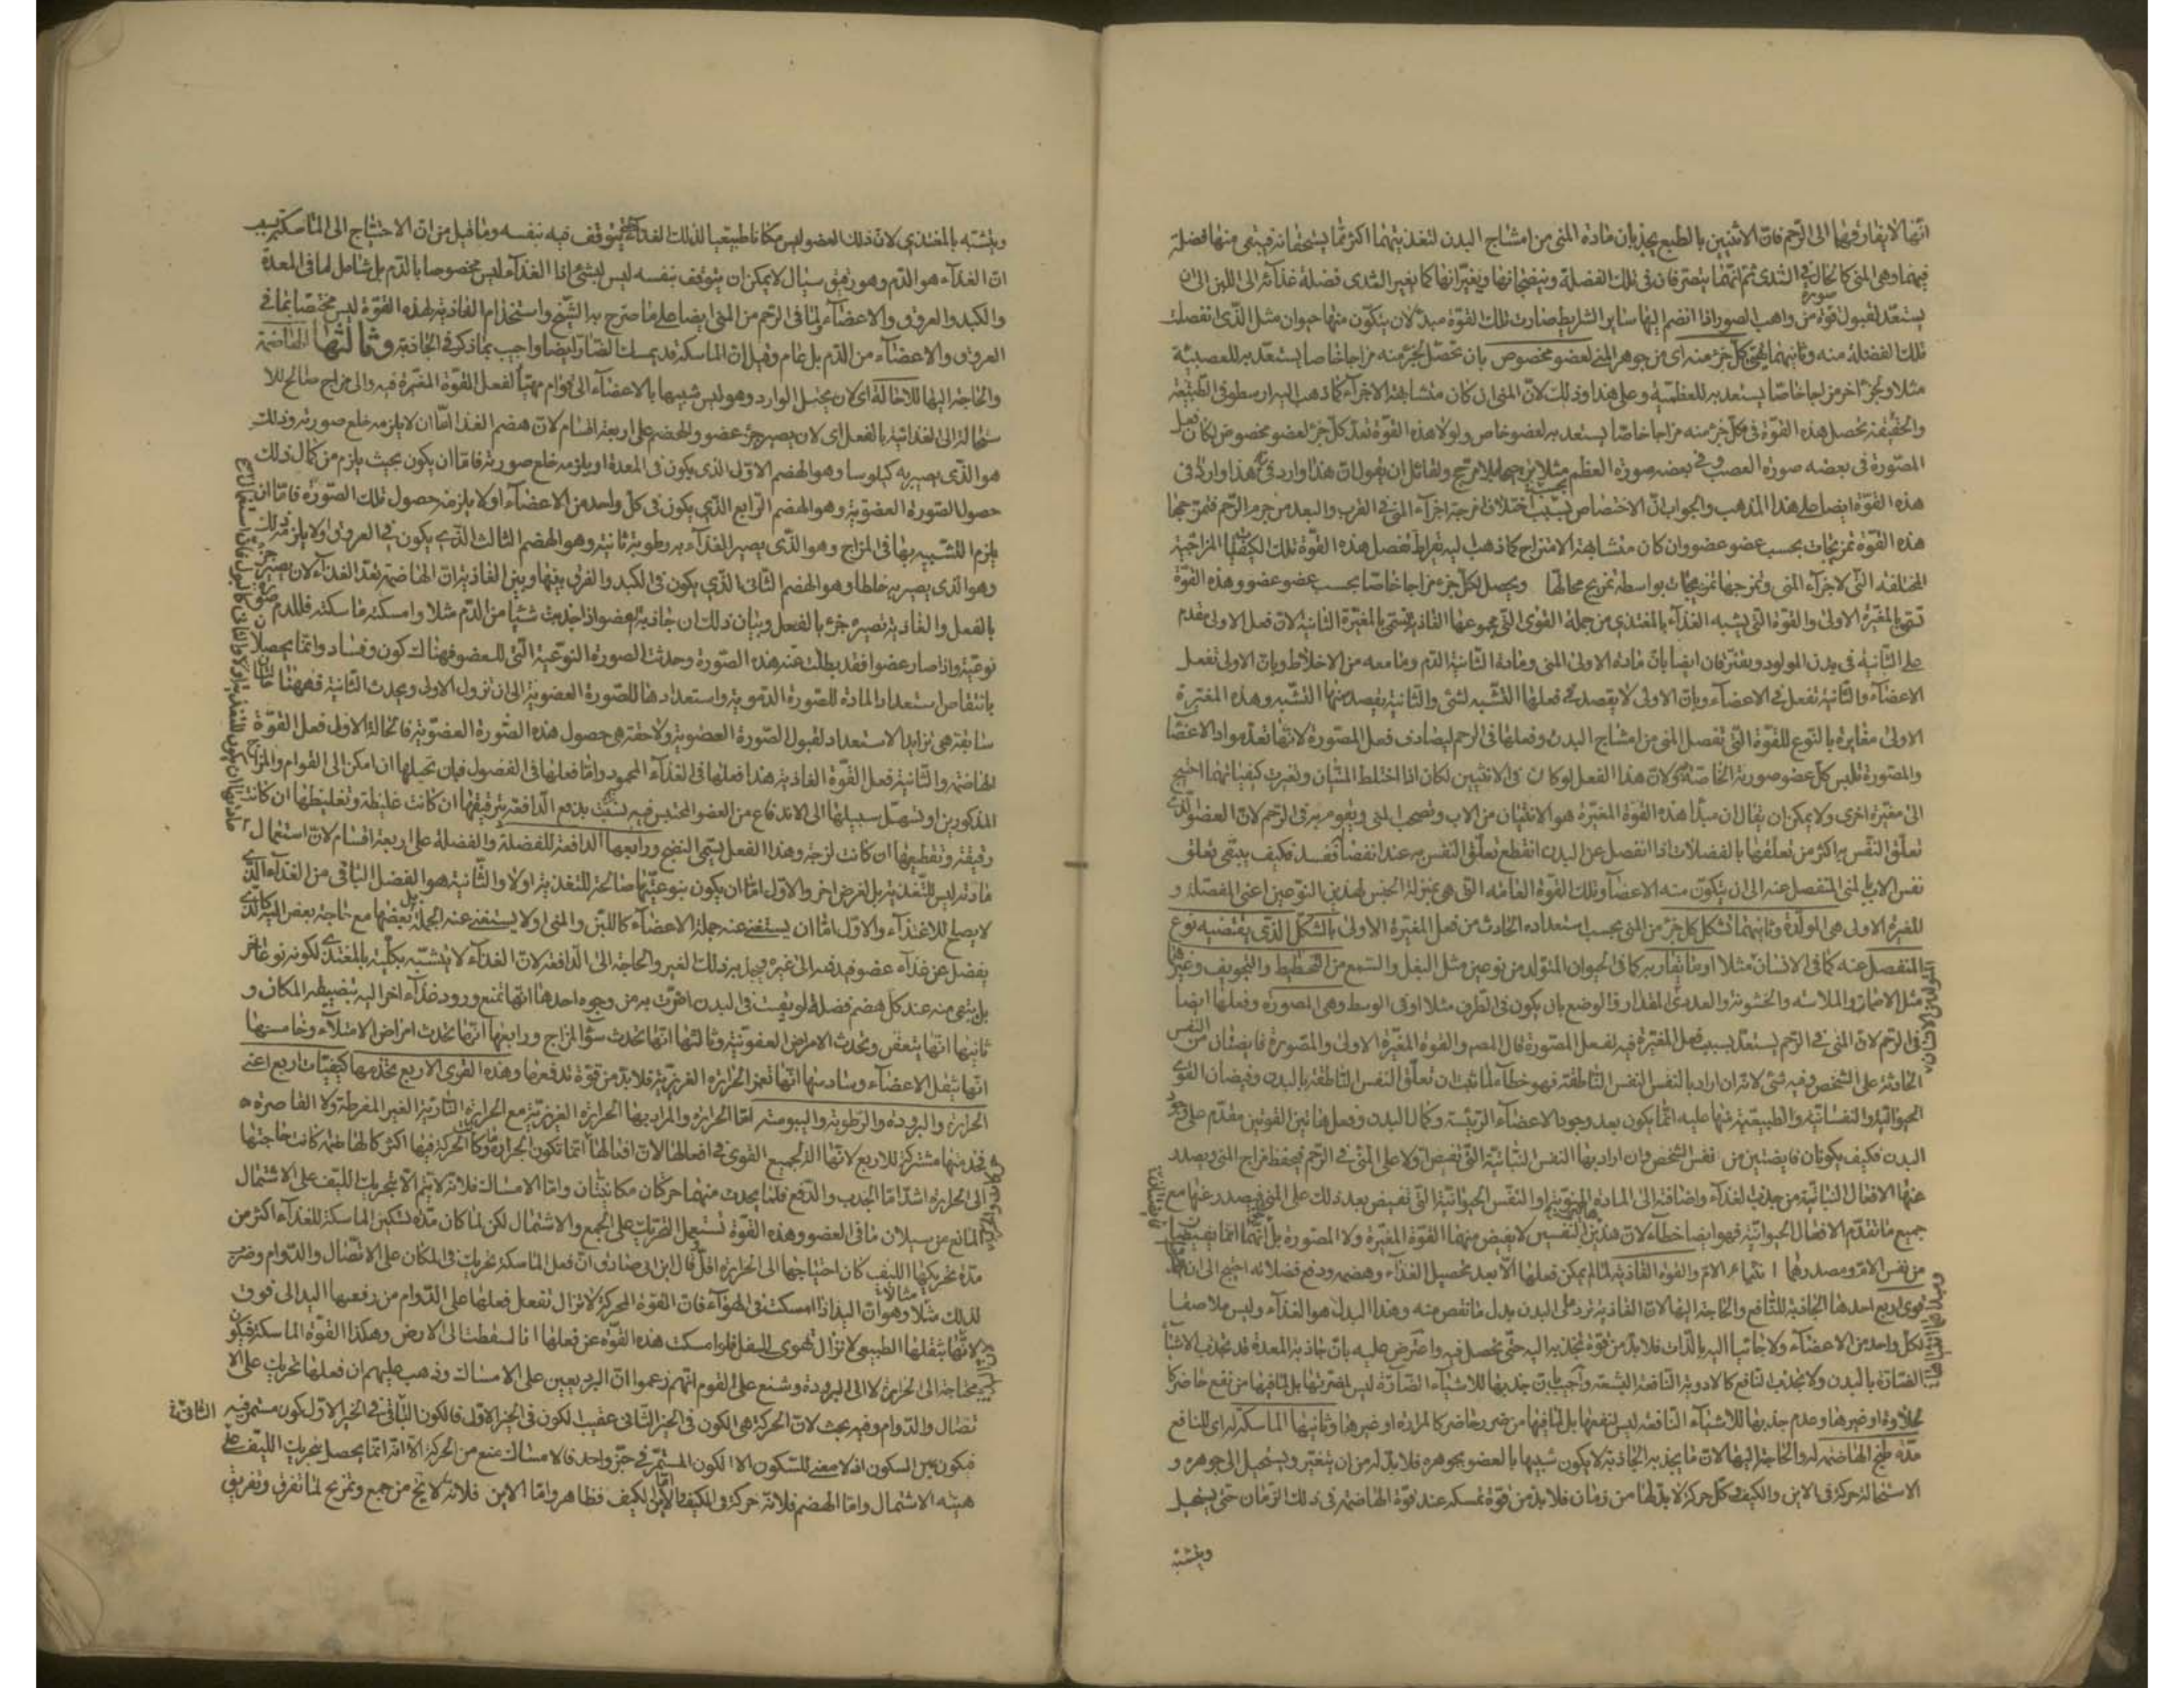 انها لا يفارقها الى الرحم فان الانثيين بالطبع يجذبان مادة المنى من امشاج البدن لتغذيتهما اكثر مما يستحقانه فيبقى منها فضلة
فيهما وهى المنى كالحال فى الثدى ثم انهما يتصرفان فى تلك الفضلة وينضجانها ويغيرانها كما يغير الثدى فضلة غذائه الى اللبن الى ان
يستعد لقبول قوة من واهب الصور اذا انضم اليها ساير الشرايط صارت تلك القوة مبدأ لان يتكون منها حيوان مثل الذى انفصلت
تلك الفضلة منه وثانيهما تهيئ كل جزء منه اى من جوهر المنى لعضو مخصوص بان تحصل لجزء منه مزاجا خاصا يستعد به للعصبية
مثلا ولجزء اخر مزاجا خاصا يستعد به للعظمية وعلى هذا وذلك لان المنى ان كان متشابهة الاجزاء كما ذهب اليه ارسطو فى الطبيعة
والحقيقة تحصل هذه القوة فى كل جزء منه مزاجا خاصا يستعد به لعضو خاص ولولا هذه القوة تعد كل جزء لعضو مخصوص لكان فعل
المصورة فى بعضه صورة العصب وفى بعضه صورة العظم مثلا ترجيحا بلا مرجح ولقائل ان يقول ان هذا وارد فى
هذه القوة ايضا على هذا المذهب والجواب ان الاختصاص بسبب اختلاف اجزاء المنى فى القرب والبعد من جرم الرحم فتمزجها
هذه القوة تمزيجات بحسب عضو عضو وان كان متشابهة الامتزاج كما ذهب اليه بقراط تفصل هذه القوة تلك الكيفيات المزاجية
المختلفة التى لاجزاء المنى وتمزجها تمزيجات بواسطة تمزيج محالها ويحصل لكل جزء مزاجا خاصا بحسب عضو عضو وهذه القوة
تسمى بالمغيرة الاولى والقوة التى يشبه الغذاء بالمغتذى من جملة القوى التى مجموعها الغاذية تسمى بالمغيرة الثانية لان فعل الاولى مقدم
على الثانية فى بدن المولود ويفترقان ايضا بان مادة الاولى المنى ومادة الثانية الدم وما معه من الاخلاط وبان الاولى تفعل
الاعضاء والثانية تفعل فى الاعضاء وبان الاولى لا يقصد فى فعلها التشبيه لشئ والثانية يقصد منها التشبيه وهذه المغيرة
الاولى مغايرة بالنوع للقوة التى تفصل المنى من امشاج البدن وفعلها فى الرحم ليصادف فعل المصورة لانها تعد مواد الاعضا
والمصورة تلبس كل عضو صورته الخاصة ولان هذا الفعل لو كان فى الانثيين لكان اذا اختلط المنيان وتغيرت كيفياتهما احتيج
الى مغيرة اخرى ولا يمكن ان يقال ان مبدأ هذه القوة المغيرة هو الانثيان من الاب وتصحب المنى ويقوم به فى الرحم لان العضو الذى
تعلق النفس به اكثر من تعلقها بالفضلات اذا انفصل عن البدن انقطع تعلق النفس به عند انفصاله فسد فكيف يبقى تعلق
نفس الاب بالمنى المنفصل عنه الى ان يتكون منه الاعضا وتلك القوة العامة التى هى بمنزلة الجنس لهذين النوعين اعنى المفصلة و
للمغيرة الاولى هى المولدة وثانيتهما تشكل كل جزء من المنى بحسب استعداده الحادث من فعل المغيرة الاولى بالشكل الذى يقتضيه نوع
المنفصل عنه كما فى الانسان مثلا او ما يقاربه كما فى الحيوان المتولد من نوعين مثل البغل والسمع من التخطيط والتجويف وغيرها
مثل الاصمات والملاسة والخشونة والعدد فى المقدار والوضع بان يكون فى الطرف مثلا او فى الوسط وهى المصورة وفعلها ايضا
فى الرحم لان المنى فى الرحم يستعد بسبب فعل المغيرة فيه لفعل المصورة قال المص والقوة المغيرة الاولى والمصورة فايضتان من النفس
الحادثة على الشخص وفيه شئ لانه ان اراد بالنفس النفس الناطقة فهو خطأ لما ثبت ان تعلق النفس الناطقة بالبدن وفيضان القوى
الحيوانية والنفسانية والطبيعية منها عليه انما يكون بعد وجود الاعضاء الرئيسة وكمال البدن وفعل هاتين القوتين مقدم على وجود
البدن فكيف يكونان فايضتين من نفس الشخص وان اراد بها النفس النباتية التى تفيض اولا على المنى فى الرحم فيحفظ مزاج المنى ويصدر
عنها الافعال النباتية من جذب الغذاء واضافته الى المادة المنوية او النفس الحيوانية التى تفيض بعد ذلك على المنى فيصدر عنها مع
جميع ما تقدم الافعال الحيوانية فهو ايضا خطأ لان هذين النفسين لا يفيض منهما القوة المغيرة ولا المصورة بل انهما انما يفيضان
من نفس الام ومصدرهما انثيا الام والقوة الغاذية لما لم يمكن فعلها الا بعد تحصيل الغذاء وهضمه ودفع فضلاته احتيج الى ان
قوى اربع احدها الجاذبة للنافع والحاجة اليها لان الغاذية تورد على البدن بدل ما نقص منه وهذا البدل هو الغذاء وليس ملاصقا
لكل واحد من الاعضاء ولا جاثيا اليه بالذات فلا بد من قوة تجذبه اليه حتى تحصل فيه واعترض عليه بان جاذبة المعدة قد تجذب الاشيا
الضارة بالبدن ولا تجذب النافع كالادوية النافعة البشعة واجيب بان جذبها للاشياء الضارة ليس لضررها بل لما فيها من نفع حاضر كا
لحلاوة او غيرها وعدم جذبها للاشياء النافعة ليس لنفعها بل لما فيها من ضرر حاضر كالمرارة او غيرها وثانيها الماسكة له اى للنافع
مدة طبخ الهاضمة له والحاجة اليها لان ما يجذبه الجاذبة لا يكون شبيها بالعضو بجوهره فلا بد له من ان يتغير ويستحيل الى جوهره و
الاستحالة حركة فى الاين والكيف وكل حركة لا بد لها من زمان فلا بد من قوة تمسكه عند قوة الهاضمة فى ذلك الزمان حتى يستحيل
ويتشبه
ويتشبه بالمغتذى لان ذلك العضو ليس مكانا طبيعيا لذلك الغذاء حتى يتوقف فيه بنفسه وما قيل من ان الاحتياج الى الماسكة بسبب
ان الغذاء هو الدم وهو رقيق سيال لا يمكن ان يتوقف بنفسه ليس بشئ اذا الغذاء ليس مخصوصا بالدم بل شامل لما فى المعدة
والكبد والعروق والاعضاء ولما فى الرحم من المنى ايضا على ما صرح به الشيخ واستخدام الغاذية لهذه القوة ليس مختصا بما فى
العروق والاعضاء من الدم بل عام وقيل ان الماسكة قد يمسك الضار ايضا واجيب بما ذكر فى الجاذبة وثالثها الهاضمة
والحاجة اليها للاحالة اى لان يحيل الوارد وهو ليس شبيها بالاعضاء الى قوام مهيأ لفعل القوة المغيرة فيه والى مزاج صالح للا
ستحالة الى الغذائية بالفعل اى لان يصير جزء عضو والهضم على اربعة اقسام لان هضم الغذا اما ان لا يلزمه خلع صورته وذلك
هو الذى يصير به كيلوسا وهو الهضم الاول الذى يكون فى المعدة او يلزمه خلع صورته فاما ان يكون بحيث يلزم من كمال ذلك
حصول الصورة العضوية وهو الهضم الرابع الذى يكون فى كل واحد من الاعضاء او لا يلزمه حصول تلك الصورة فاما ان
يلزم التشبيه بها فى المزاج وهو الذى يصير الغذاء به رطوبة ثانية وهو الهضم الثالث الذى يكون فى العروق او لا يلزمه ذلك
وهو الذى يصير به خلطا وهو الهضم الثانى الذى يكون فى الكبد والفرق بينها وبين الغاذية ان الهاضمة تعد الغذاء لان يصير جزء
بالفعل والغاذية تصيره جزء بالفعل وبيان ذلك ان جاذبة العضو اذا جذبت شيئا من الدم مثلا وامسكته ماسكته فللدم صورة
نوعية واذا صار عضوا فقد بطلت عنه هذه الصورة وحدثت الصورة النوعية التى للعضو فهناك كون وفساد وانما يحصلان
بانتقاص استعداد المادة للصورة الدموية واستعدادها للصورة العضوية الى ان تزول الاولى ويحدث الثانية فههنا حالتان
سابقة هى تزايد الاستعداد لقبول الصورة العضوية ولاحقة هى حصول هذه الصورة العضوية فالحالة الاولى فعل القوة
الهاضمة والثانية فعل القوة الغاذية هذا فعلها فى الغذاء المحمود واما فعلها فى الفضول فبان تحيلها ان امكن الى القوام والمزاج
المذكورين او تسهل سبيلها الى الاندفاع من العضو المحتبس فيه بدفع الدافعة بترقيقها ان كانت غليظة وتغليظها ان كانت
رقيقة وتقطيعها ان كانت لزجة وهذا الفعل يسمى النضج ورابعها الدافعة للفضلة والفضلة على اربعة اقسام لان استعمال
مادته ليس للتغذية بل لغرض اخر والاول اما ان يكون بنوعيتها صالحة للتغذية اولا والثانية هو الفضل الباقى من الغذاء الذى
لا يصلح للاغتذاء والاول اما ان يستغنى عنه جملة الاعضاء كاللبن والمنى او لا يستغنى عنه الجملة بل بعضها مع حاجة بعض اليه كالذى
يفضل عن غذاء عضو فيدفعه الى غيره ويجذبه ذلك الغير والحاجة الى الدافعة لان الغذاء لا يتشبه بكليته بالمغتذى لكونه نوعا اخر
بل يبقى منه عند كل هضم فضلة لو بقيت فى البدن اضرت به من وجوه احدها انها تمنع ورود غذاء اخر اليه بتضييقه المكان و
ثانيها انها يتعفن ويحدث الامراض العفونية وثالثها انها تحدث سوء المزاج ورابعها انها تحدث امراض الامتلاء وخامسها
انها يثقل الاعضاء وسادسها انها تغمر الحرارة الغريزية فلا بد من قوة تدفعها وهذه القوى الاربع تخدمها كيفيات اربع اعنى
الحرارة والبرودة والرطوبة واليبوسة اما الحرارة والمراد بها الحرارة الغريزية مع الحرارة النارية الغير المفرطة ولا القاصرة
فخدمتها مشتركة للاربع لانها آلة لجميع القوى فى افعالها لان افعالها انما تكون بالحركة وكل ما كانت الحركة فيها اكثر كانت حاجتها
الى الحرارة اشد اما الجذب والدفع فلما يحدث منهما حركتان مكانيتان واما الامساك فلانه لا يتم الا بتحريك الليف على الاشتمال
المانع من سيلان ما فى العضو وهذه القوة تستعمل التحريك على الجمع والاشتمال لكن لما كان مدة تسكين الماسكة للغذاء اكثر من
مدة تحريكها الليف كان احتياجها الى الحرارة اقل قال ابن ابى صادق ان فعل الماسكة تحريك فى المكان على الاتصال والدوام وضرب
لذلك مثالا وهو ان اليد اذا امسكت فى الهواء فان القوة المحركة لا تزال تفعل فعلها على الدوام من رفعها اليد الى فوق
لانها بثقلها الطبيعى لا تزال تهوى الى اسفل فلو امسكت هذه القوة عن فعلها انا لسقطت الى الارض وهكذا القوة الماسكة فيكون
محتاجة الى الحرارة لا الى البرودة وشنع على القوم انهم زعموا ان البرد يعين على الامساك وذهب عليهم ان فعلها تحريك على الا
تصال والدوام وفيه بحث لان الحركة هى الكون فى الحيز الثانى عقيب الكون فى الحيز الاول فالكون الثانى فى الحيز الاول كون مستمر فيه
فيكون عين السكون اذ لا معنى للسكون الا الكون المستمر فى حيز واحد فالامساك منع من الحركة الا انه انما يحصل بتحريك الليف على
هيئة الاشتمال واما الهضم فلانه حركة فى الكيف والاين اما الكيف فظاهر واما الاين فلانه لا يخ من جمع وتمزيج لما تفرق وتفريق